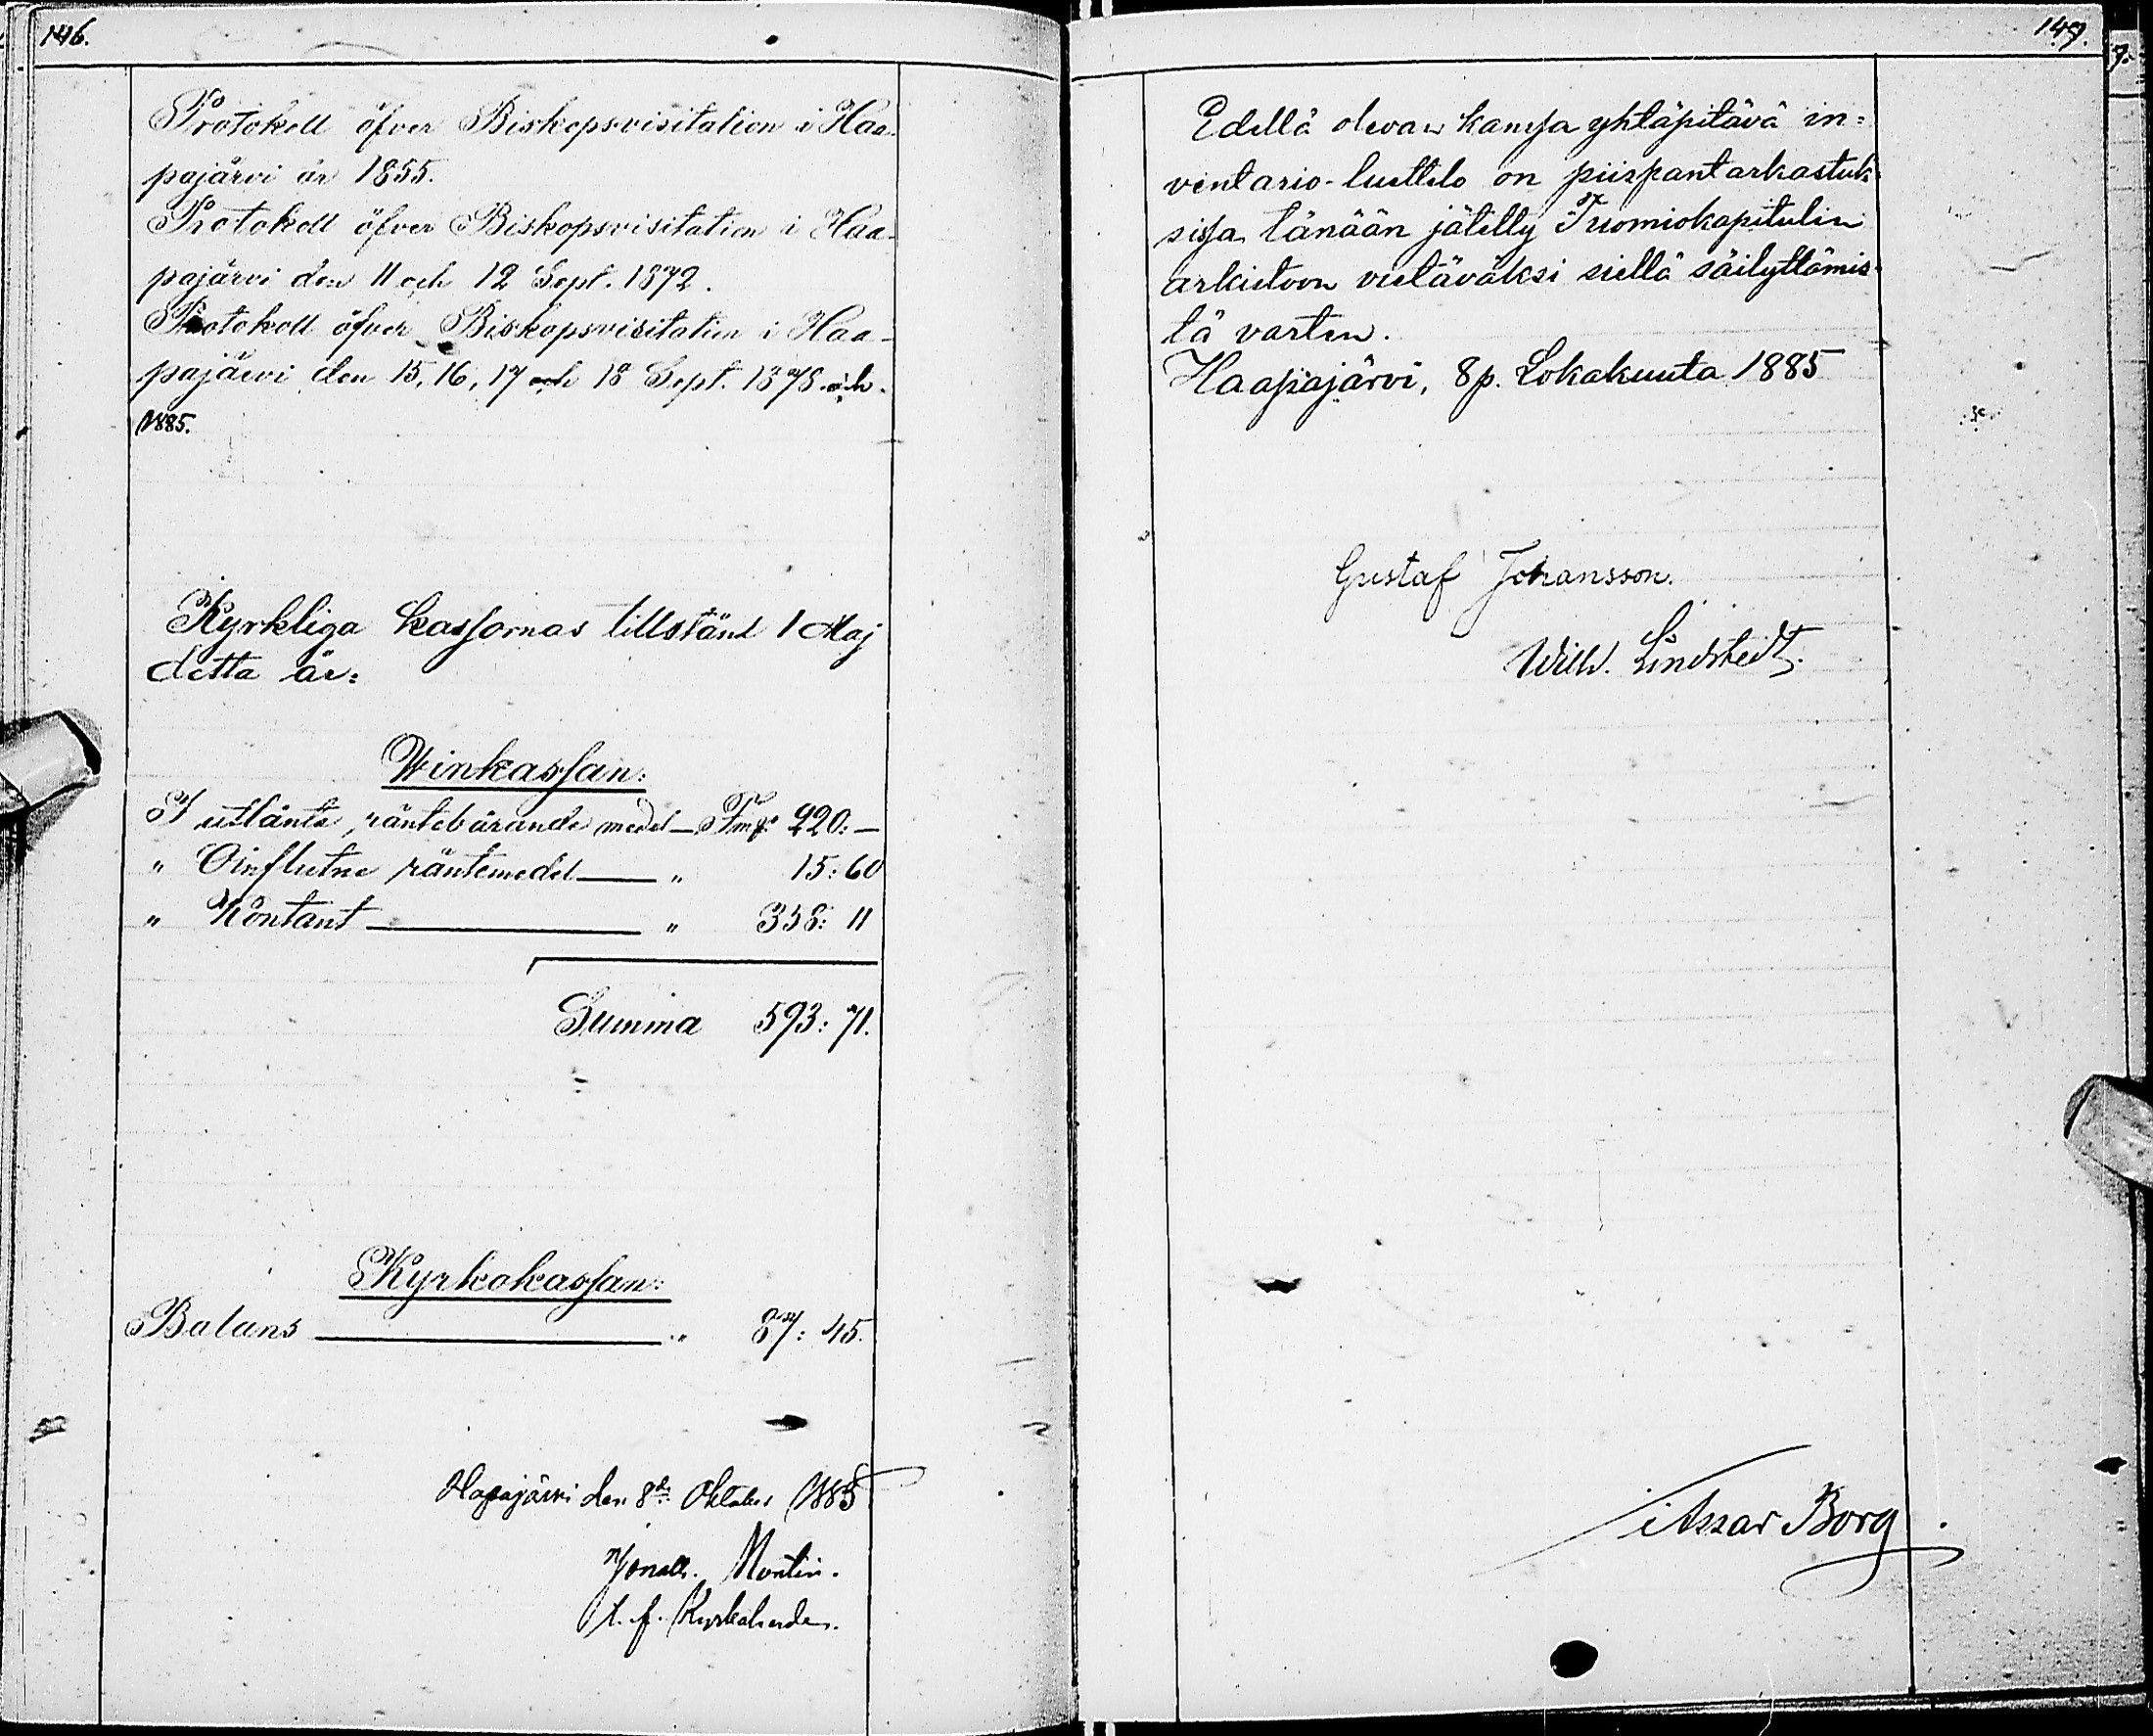 146.
Protokoll öfver Biskopsvisitation i Haa-
pajärvi år 1855.
Protokoll öfver Biskopsvisitation i Haa-
pajärvi den 11 och 12 Sept. 1872.
Protokoll öfver Biskopsvisitation i Haa-
pajärvi den 15, 16, 17 och 18 Sept. 1878 och.
1885.
Kyrkliga kassornas tillstånd 1 Maj
detta år:
Winkassan:
I utlånta, räntebärande medel — Fmk 220: —
" Oinflutne räntemedel — " 15: 60
" Kontant — " 358: 11
Summa 593: 71.
Kyrkokassan:
Balans — " 87: 45.
Hapajärvi den 8de Oktober 1885
Montin.
t. f. Kyrkoherde.
147.
Edellä olevan kanssa yhtäpitävä in=
ventario-luettelo on piispantarkastuk-
sissa tänään jätetty Tuomiokapitulin
arkistoon vietäväksi siellä säilyttämis-
tä varten.
Haapajärvi, 8 p. Lokakuuta 1885
Gustaf Johansson.
Wilh. Lindstedt.
Assar Borg
7.